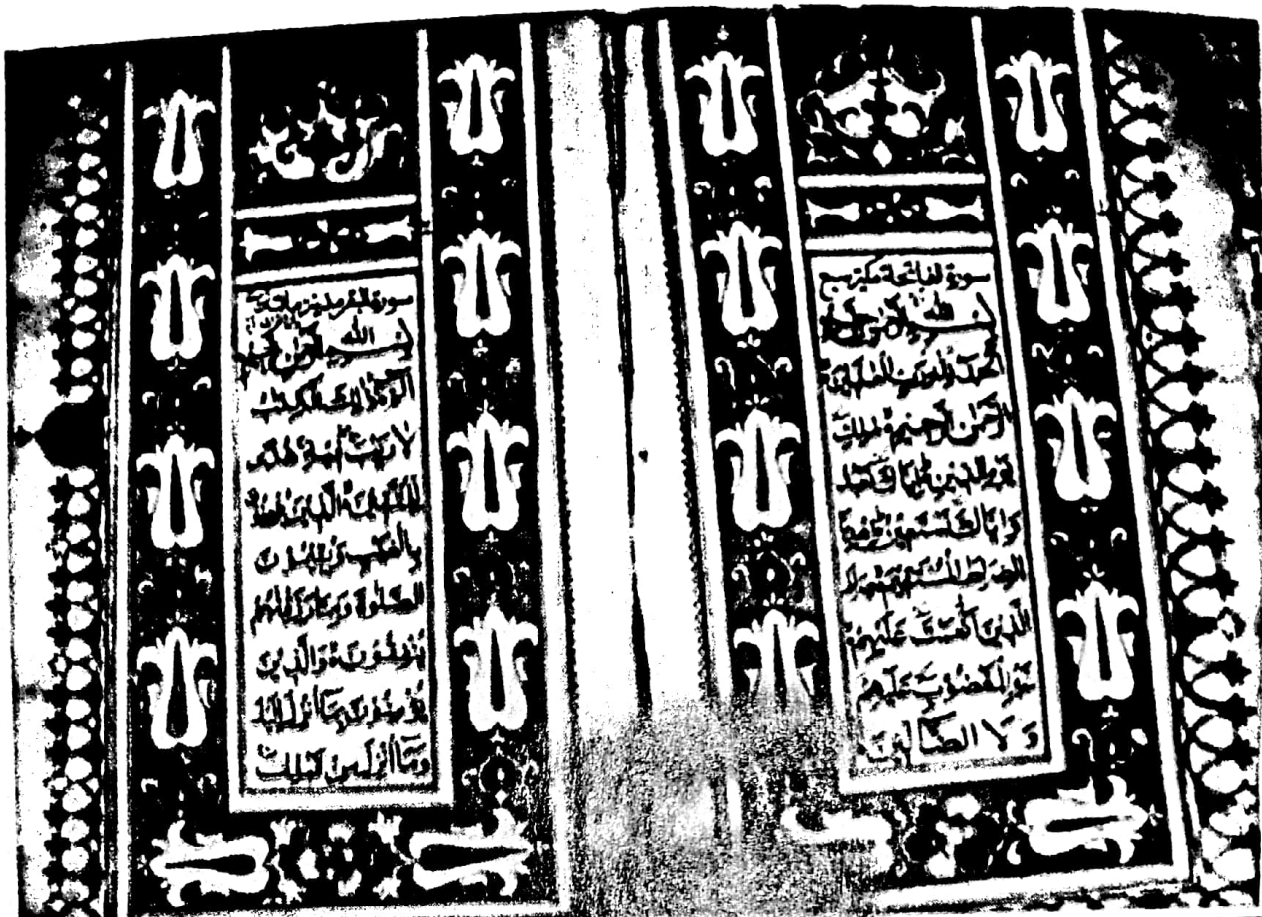 سورة الفاتحة مكية سبع
بسم الله الرحمن الرحيم
الحمد لله رب العلمين
الرحمن الرحيم ملك
يوم الدين اياك نعبد
واياك نستعين اهدنا
الصراط المستقيم صراط
الذين انعمت عليهم
غير المغضوب عليهم
ولا الضالين
سورة البقرة مدنية
بسم الله الرحمن الرحيم
الم ذلك الكتب
لا ريب فيه هدى
للمتقين الذين يؤمنون
بالغيب ويقيمون
الصلوة ومما رزقنهم
ينفقون والذين
يؤمنون بما انزل اليك
وما انزل من قبلك